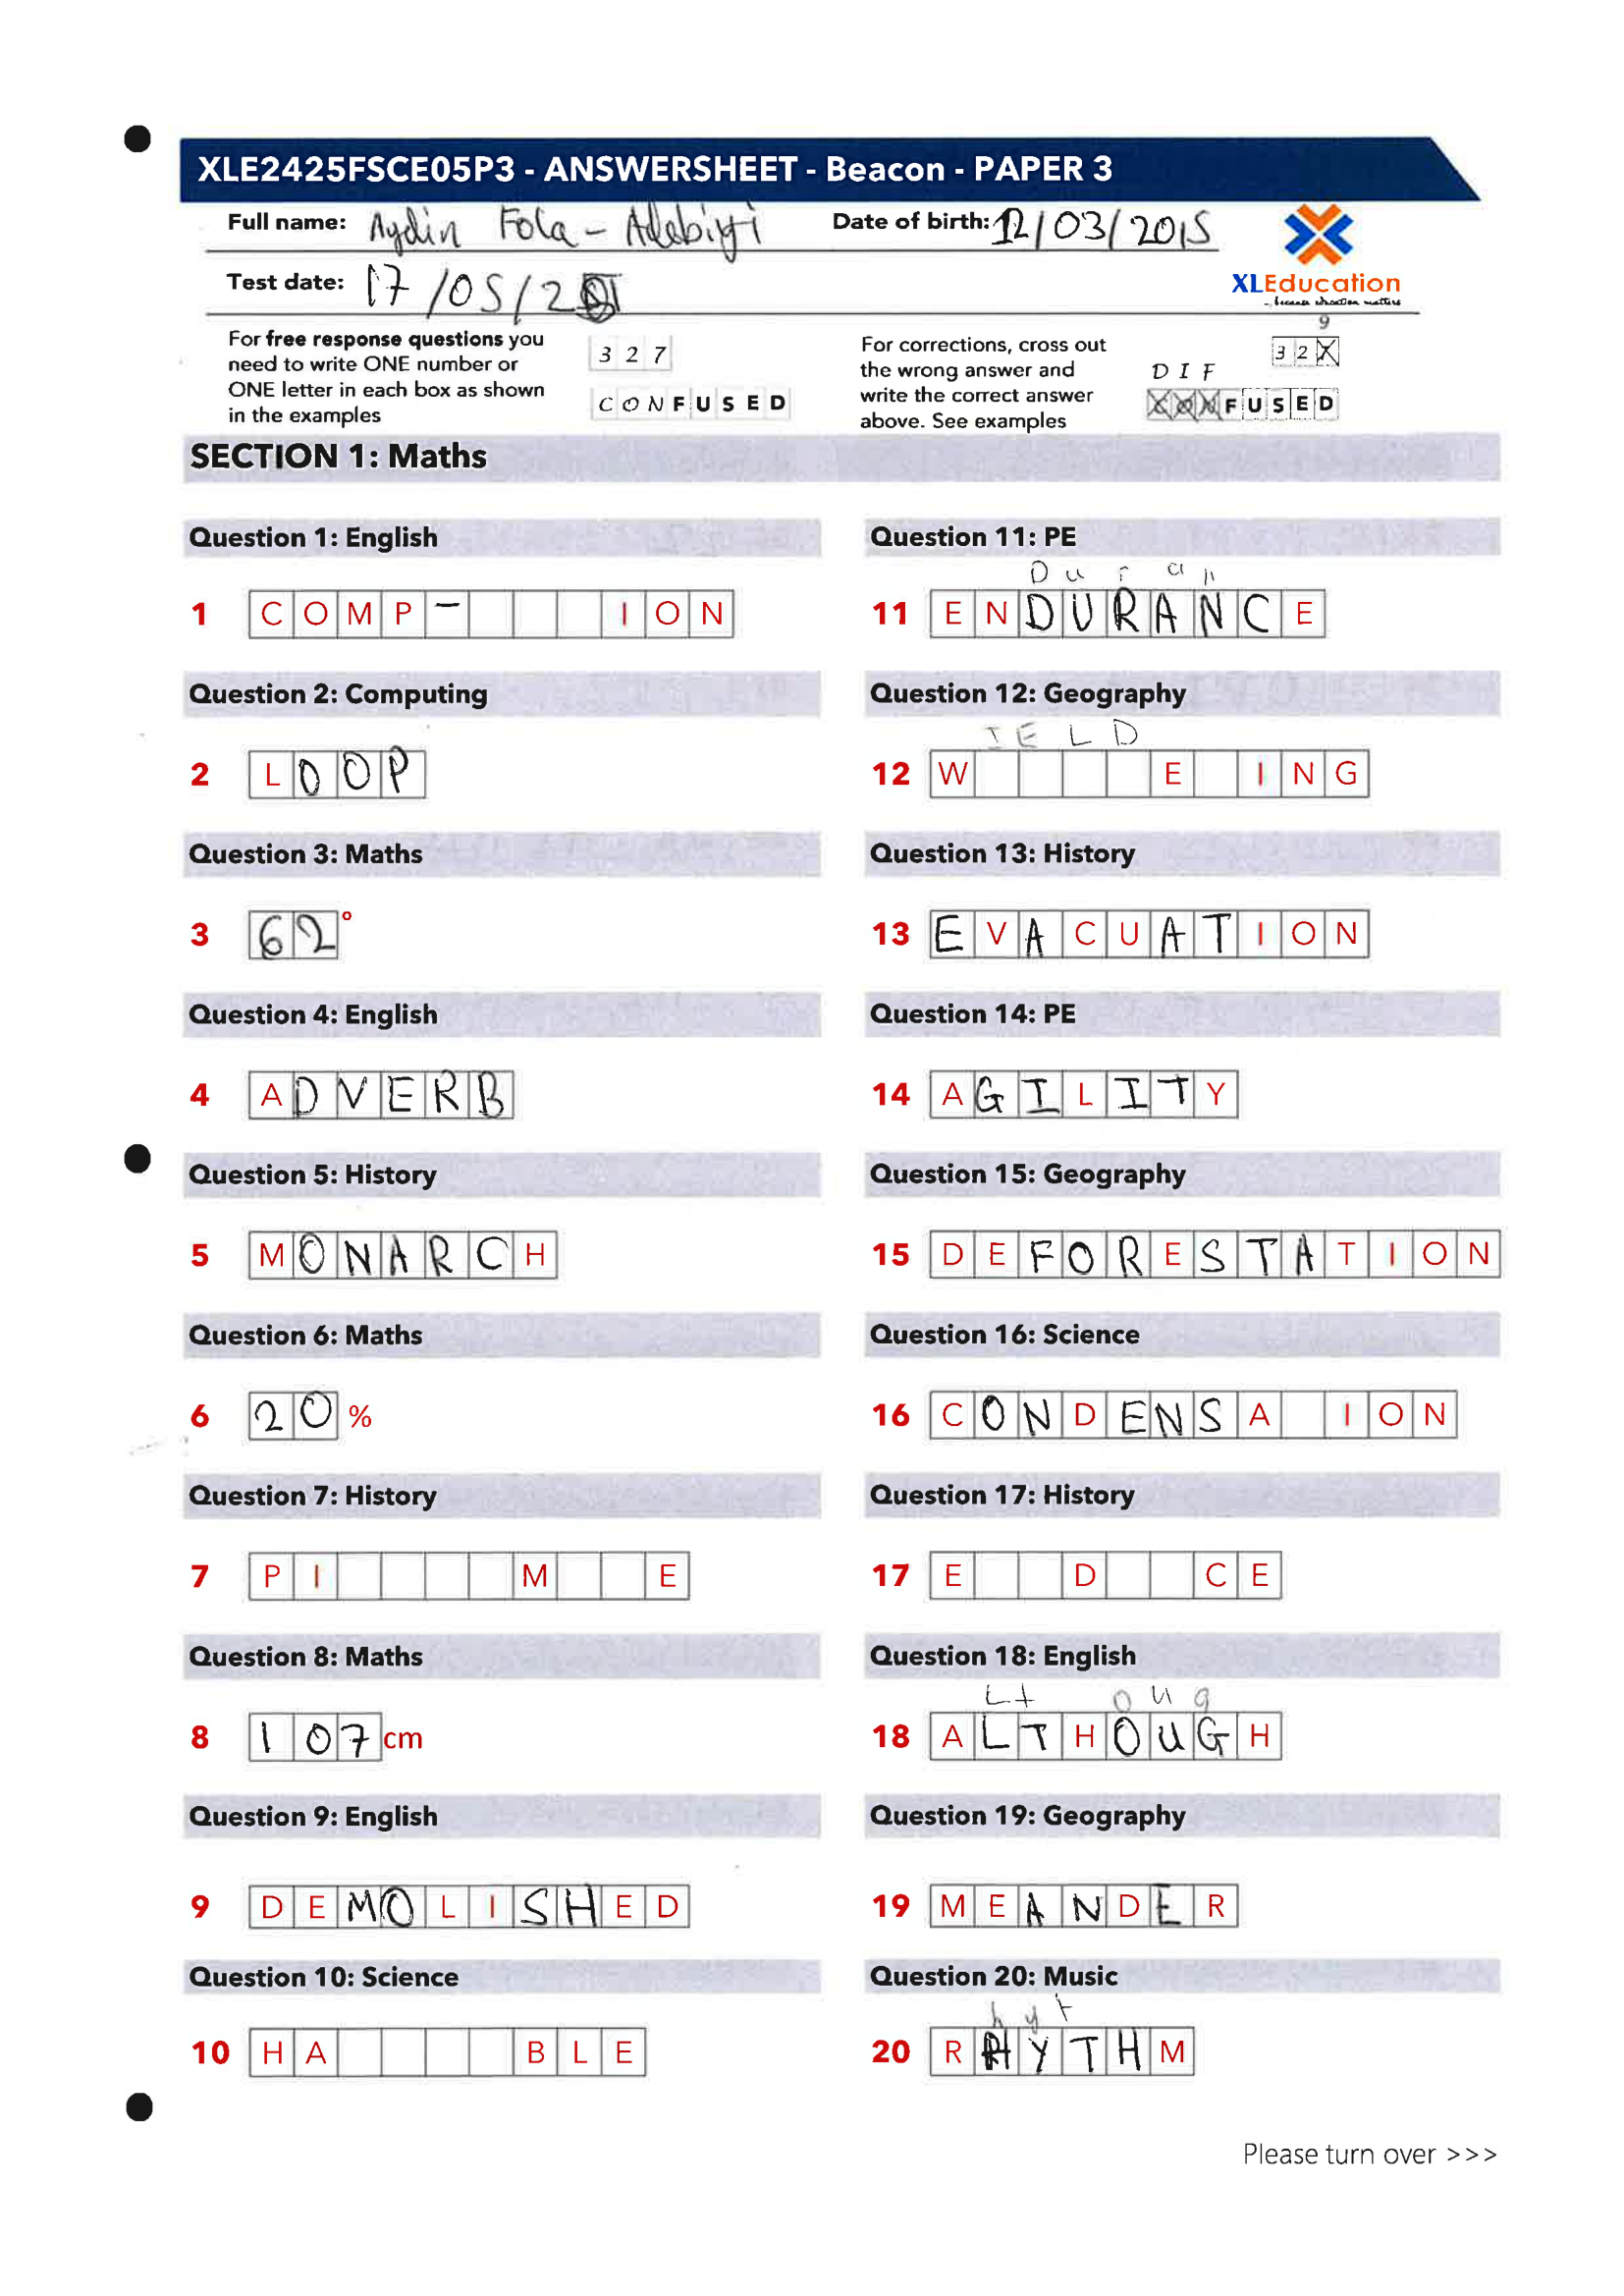 XLE2425FSCE05P3 - ANSWERSHEET - Beacon - PAPER 3
Full name: Aydin Fola-Adebiyi
Date of birth: 12/03/2015
Test date: 17/05/2
XLEducation
... because education matters
For free response questions you
need to write ONE number or
ONE letter in each box as shown
in the examples
3 2 7
C O N F U S E D
For corrections, cross out
the wrong answer and
write the correct answer
above. See examples
9
3 2 X
D I F
C O N F U S E D
SECTION 1: Maths
Question 1: English
1 C O M P - I O N
Question 2: Computing
2 L O O P
Question 3: Maths
3 6 2 °
Question 4: English
4 A D V E R B
Question 5: History
5 M O N A R C H
Question 6: Maths
6 2 0 %
Question 7: History
7 P I M E
Question 8: Maths
8 1 0 7 cm
Question 9: English
9 D E M O L I S H E D
Question 10: Science
10 H A B L E
Question 11: PE
D u r a n
11 E N D U R A N C E
Question 12: Geography
I E L D
12 W E I N G
Question 13: History
13 E V A C U A T I O N
Question 14: PE
14 A G I L I T Y
Question 15: Geography
15 D E F O R E S T A T I O N
Question 16: Science
16 C O N D E N S A I O N
Question 17: History
17 E D C E
Question 18: English
L t o u g
18 A L T H O U G H
Question 19: Geography
19 M E A N D E R
Question 20: Music
h y t
20 R H Y T H M
Please turn over >>>